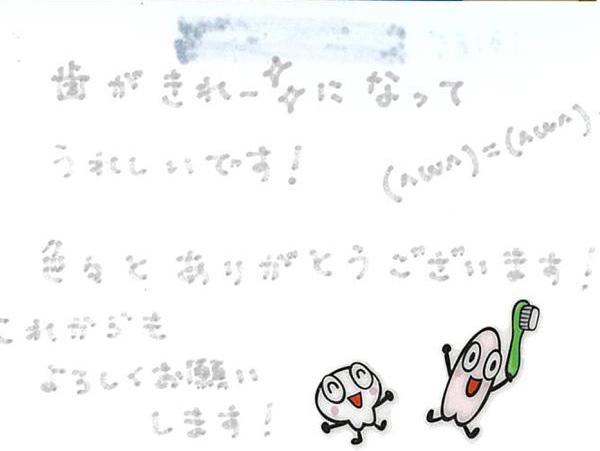 歯がきれー✨になって
うれしいです！ (^ω^)=(^ω^)
色々とありがとうございます！
これからも
よろしくお願い
します！